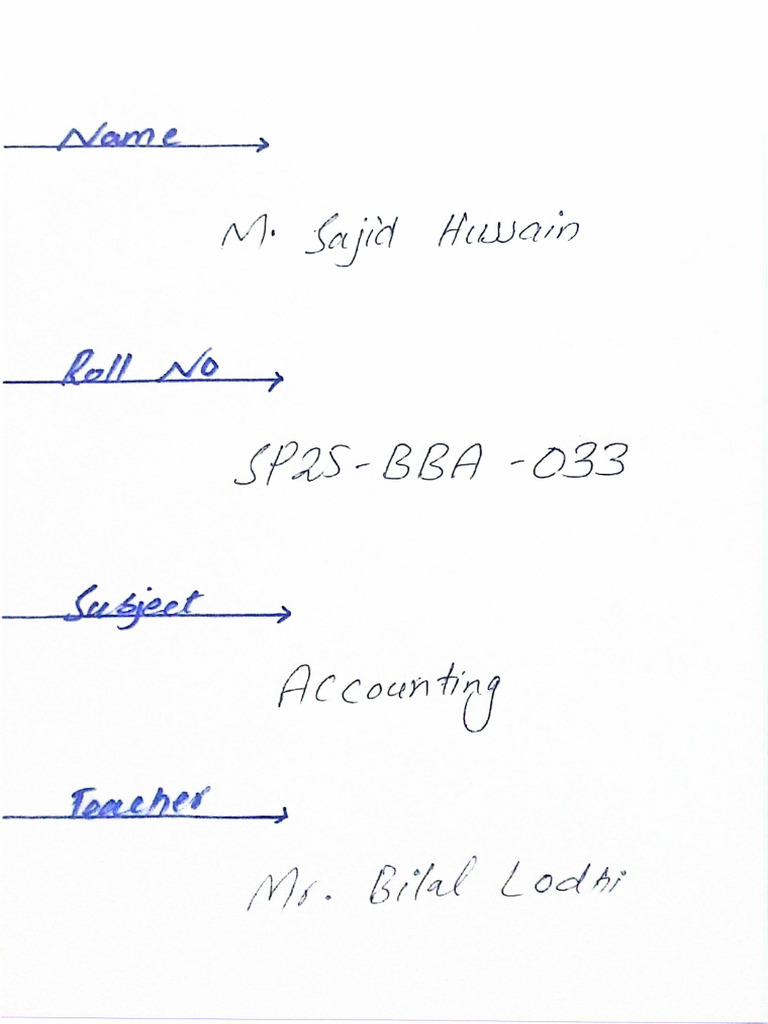 Name
M. Sajid Hussain
Roll No
SP25-BBA-033
Subject
Accounting
Teacher
Mr. Bilal Lodhi